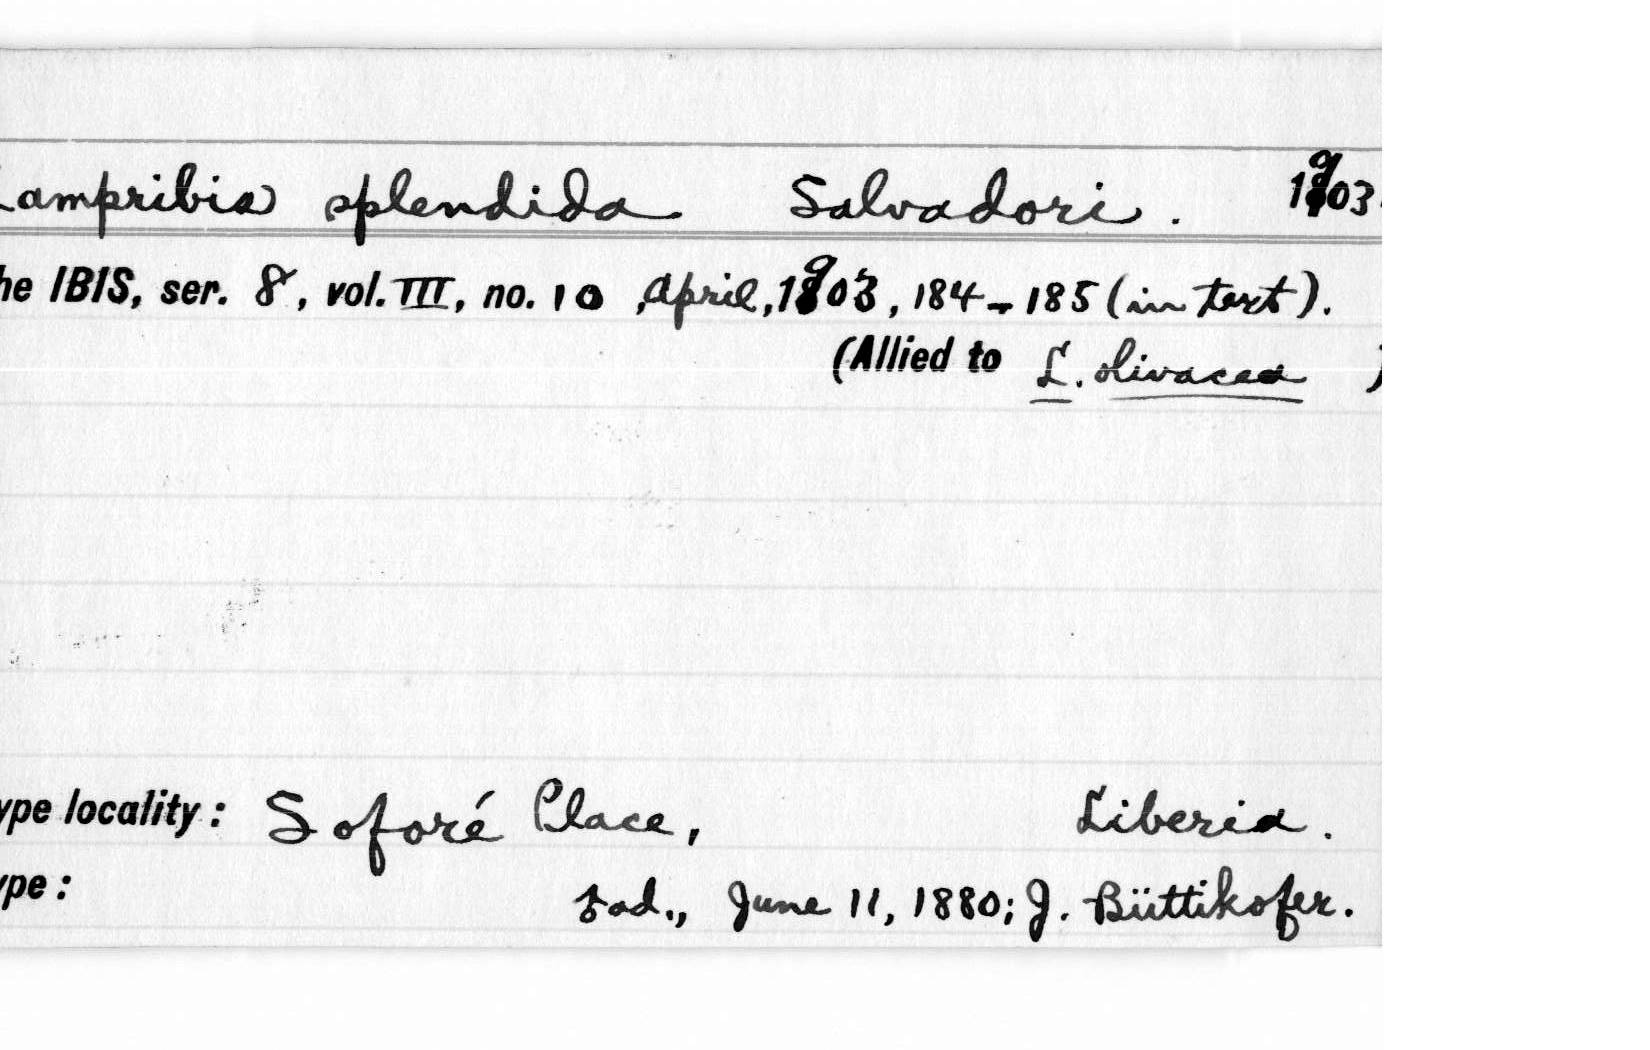 Lampribis splendida Salvadori. 1903.
he IBIS, ser. 8, vol. III, no. 10, April, 1903, 184-185 (in text).
(Allied to L. olivacea )
ype locality: Soforé Place, Liberia.
ype: ad., June 11, 1880; J. Büttikofer.